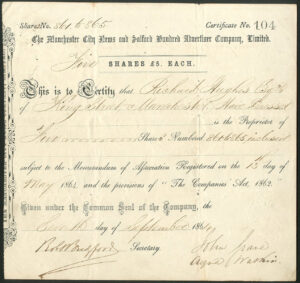 Shares No. 861 to 865 Certificate No. 104
The Manchester City News and Salford Hundred Advertiser Company, Limited.
Five
SHARES £5. EACH.
This is to Certify that Richard Hughes Esqre
of King Street Manchester
is the Proprietor of
Five Shares Numbered 861 to 865 inclusive
subject to the Memorandum of Association Registered on the 13 day of
May 1864 and the provisions of "The Companies Act, 1862.
Given under the Common Seal of the Company, the
day of September 1864
Secretary.
John